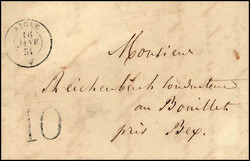 AIGLE
16
JANV
51
Monsieur
Reichenbach Conducteur
au Bouillet
près Bex.
10